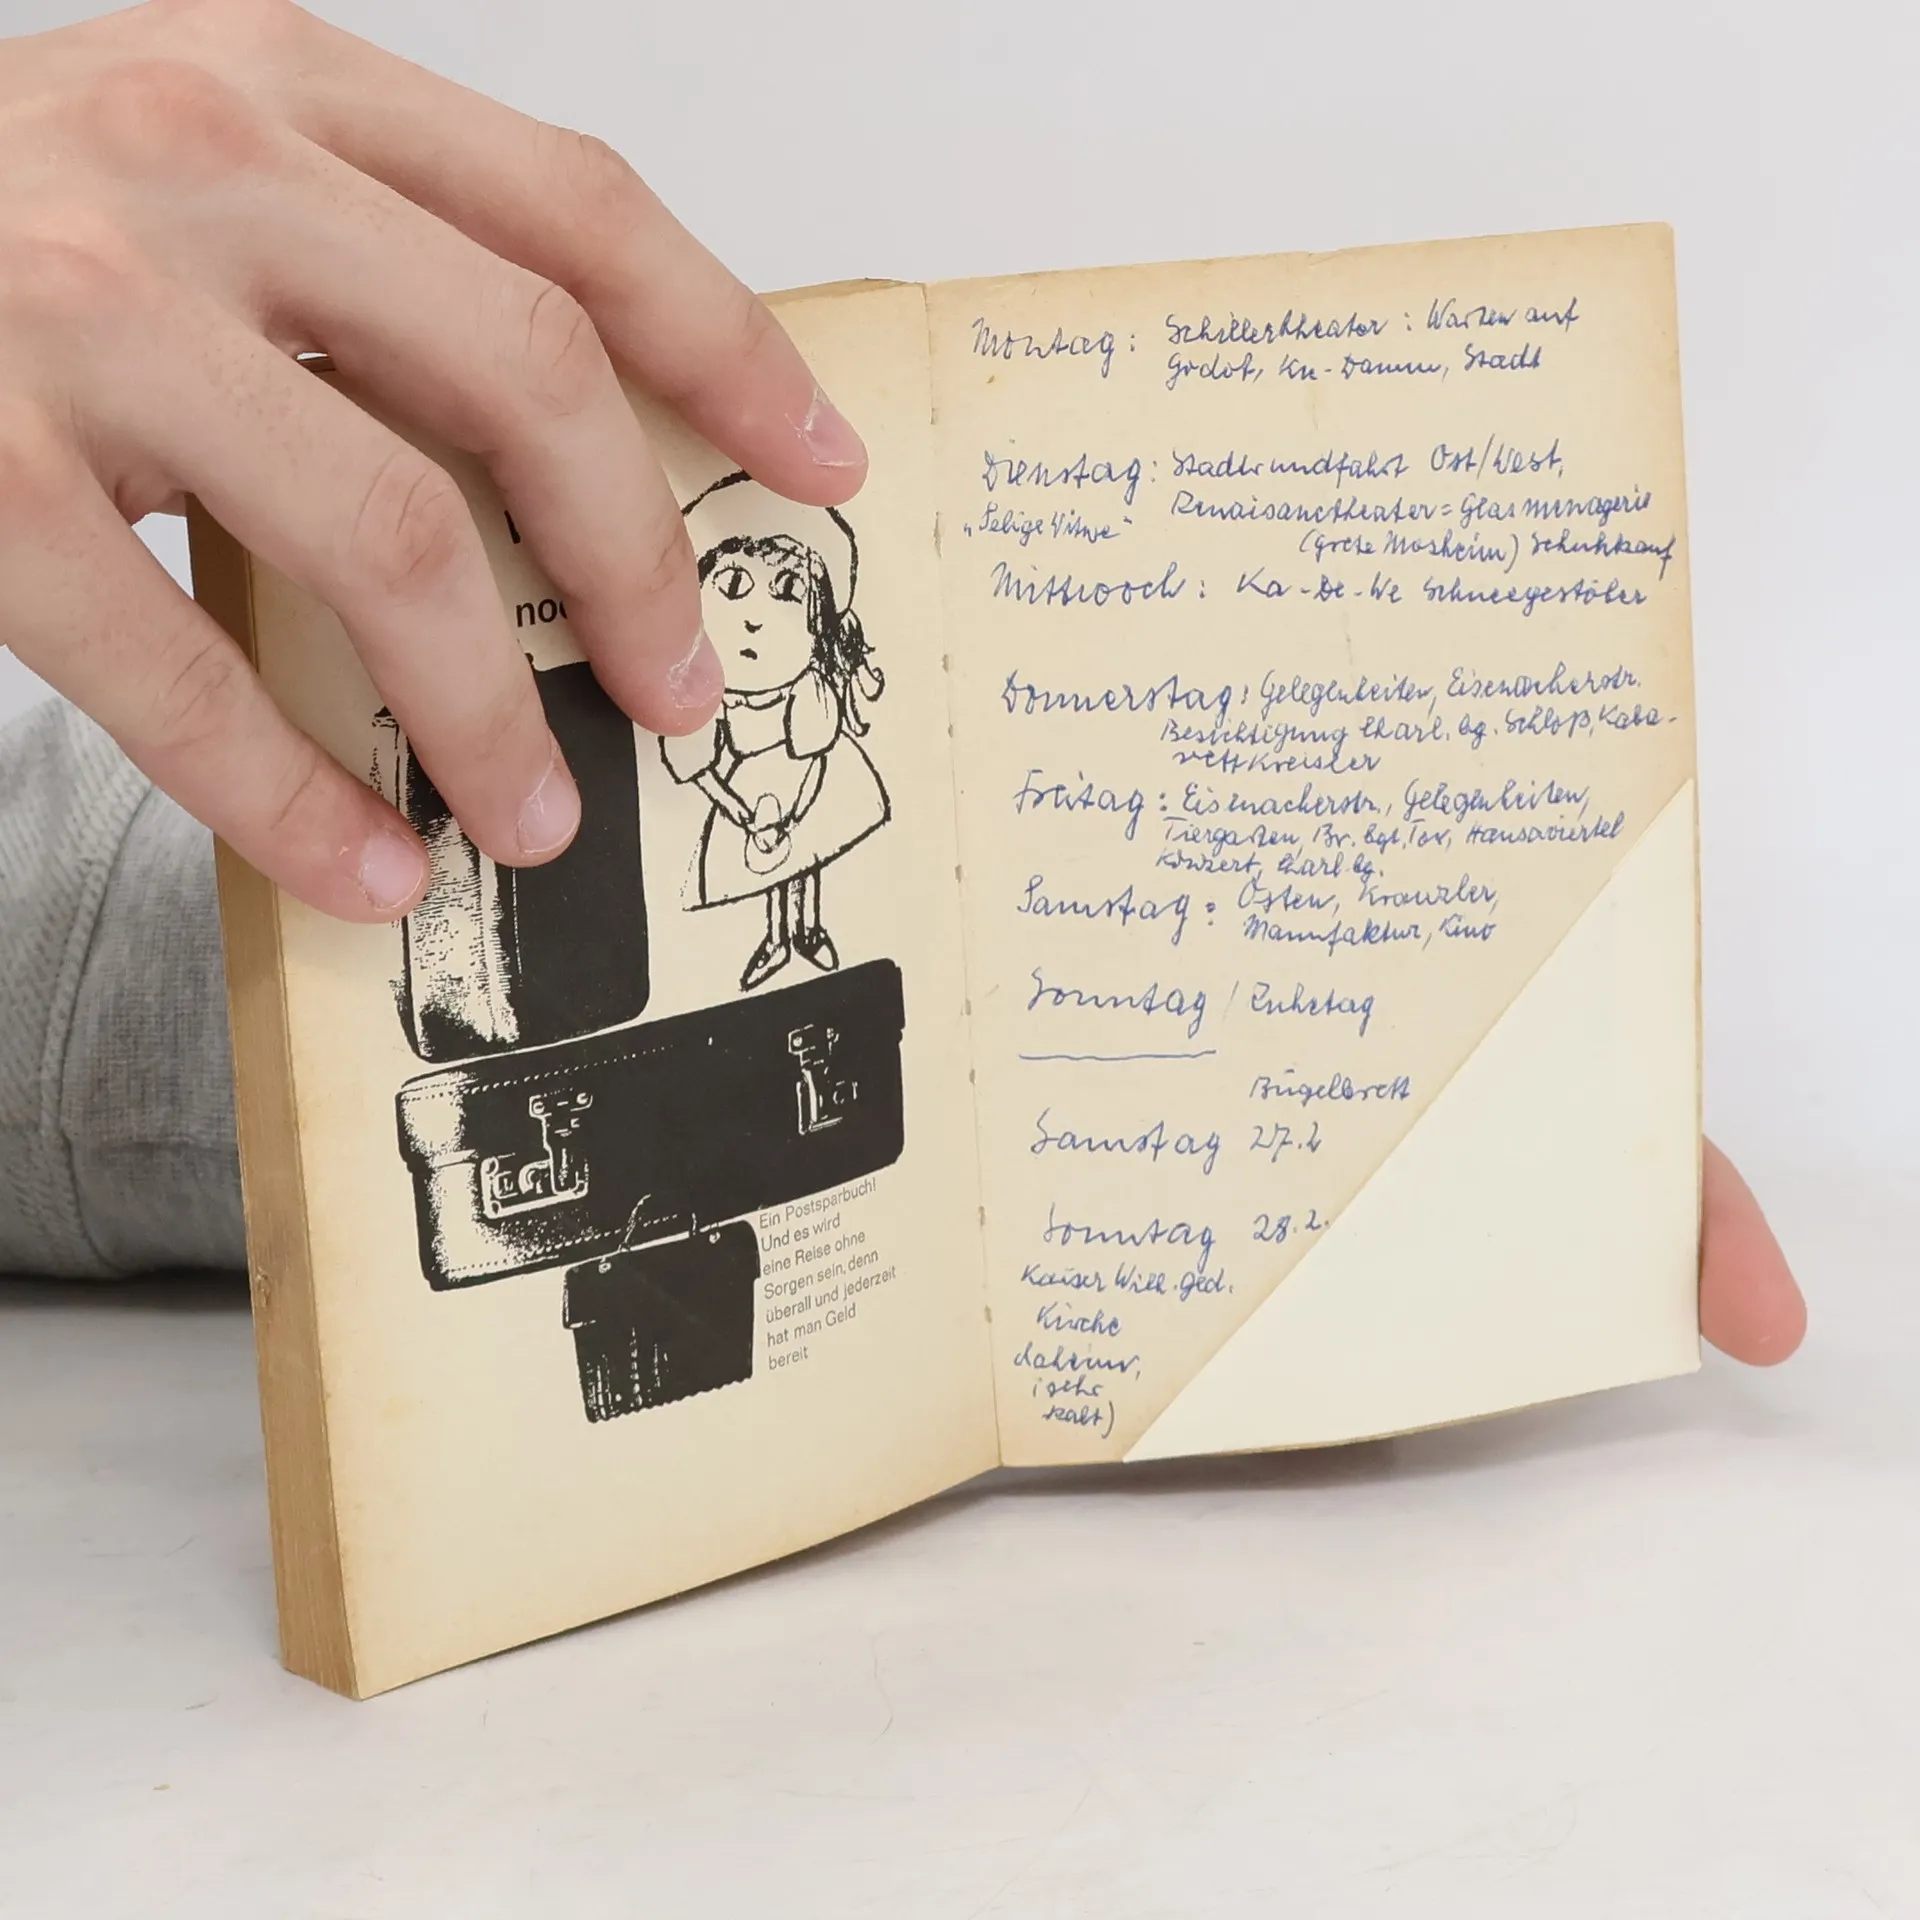 noc
Ein Postsparbuch!
Und es wird
eine Reise ohne
Sorgen sein, denn
überall und jederzeit
hat man Geld
bereit
Montag: Schillertheater: Warten auf
Godot, Ku-Damm, Stadt
Dienstag: Stadtrundfahrt Ost/West,
Renaisanctheater = Glasmenagerie
„Selige Witwe"
(Grete Mosheim) Schuhkauf
Mittwoch: Ka-De-We Schneegestöber
Donnerstag: Gelegenheiten, Eisenacherstr.
Besichtigung Charl. bg. Schloß, Kaba-
rett Kreisler
Freitag: Eisenacherstr., Gelegenheiten,
Tiergarten, Br. bgt. Tor, Hansaviertel
Konzert, Charl. bg.
Samstag: Osten, Kranzler,
Manufaktur, Kino
Sonntag / Ruhetag
Bügelbrett
Samstag 27.2
Sonntag 28.2.
Kaiser Wilh. ged.
Kirche
(sehr
kalt)